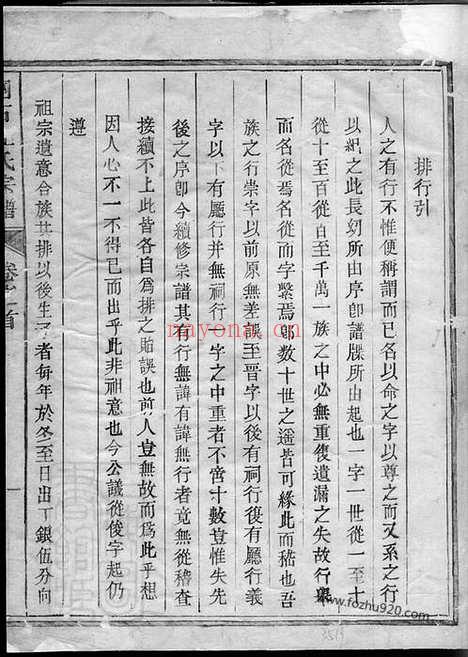 排行引
人之有行不惟便稱謂而已名以命之字以尊之而又系之行
以紀之此長幼所由序卽譜牒所由起也一字一世從一至十
從十至百從百至千萬一族之中必無重復遺漏之失故行舉
而名從焉名從而字繫焉卽數十世之遥皆可緣此而稽也吾
族之行崇字以前原無差謬至晉字以後有祠行復有廳行義
字以下有廳行并無祠行一字之中重者不啻十數豈惟失先
後之序卽今續修宗譜其有行無諱有諱無行者竟無從稽查
接續不上此皆各自爲排之貽誤也前人豈無故而爲此乎想
因人心不一不得已而出乎此非祖意也今公議從俊字起仍
遵
祖宗遺意合族共排以後生子者每年於冬至日出丁銀伍分向
氏宗譜
卷之首
一
nayona.cn
www.fozhu920.com